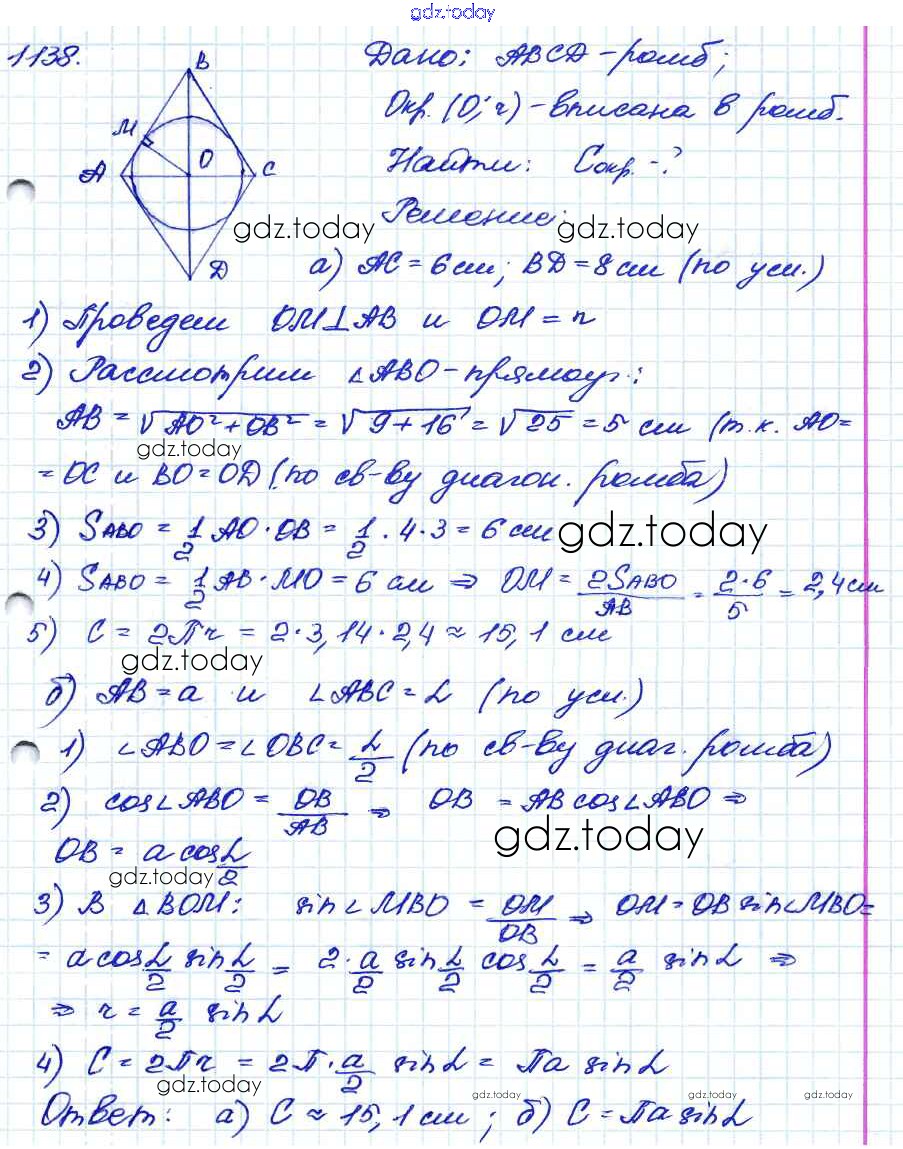 gdz.today
1138.
B
M
A
O
C
D
Дано: ABCD – ромб;
Окр. (O; r) – вписана в ромб.
Найти: Cокр. – ?
gdz.today
gdz.today
Решение:
а) AC = 6 см; BD = 8 см (по усл.)
1) Проведем OM⊥AB и OM = r
2) Рассмотрим ∠ABO – прямоуг.:
AB = √AO² + OB² = √9 + 16 = √25 = 5 см (т.к. AO =
gdz.today
= OC и BO = OD (по св-ву диагон. ромба)
3) SABO = 1/2 AO · OB = 1/2 · 4 · 3 = 6 см
gdz.today
4) SABO = 1/2 AB · MO = 6 см ⇒ OM = 2SABO/AB = 2·6/5 = 2,4 см
5) C = 2πr = 2 · 3,14 · 2,4 ≈ 15,1 см
gdz.today
б) AB = a и ∠ABC = α (по усл.)
1) ∠ABO = ∠OBC = α/2 (по св-ву диаг. ромба)
2) cos∠ABO = OB/AB ⇒ OB = AB cos∠ABO ⇒
gdz.today
OB = a cos α/2
gdz.today
3) В △BOM: sin∠MBO = OM/OB ⇒ OM = OB sin∠MBO =
= a cos α/2 sin α/2 = 2 · a/2 sin α/2 cos α/2 = a/2 sin α ⇒
⇒ r = a/2 sin α
4) C = 2πr = 2π · a/2 sin α = πa sin α
gdz.today
gdz.today
gdz.today
gdz.today
Ответ: а) C ≈ 15,1 см; б) C = πa sin α